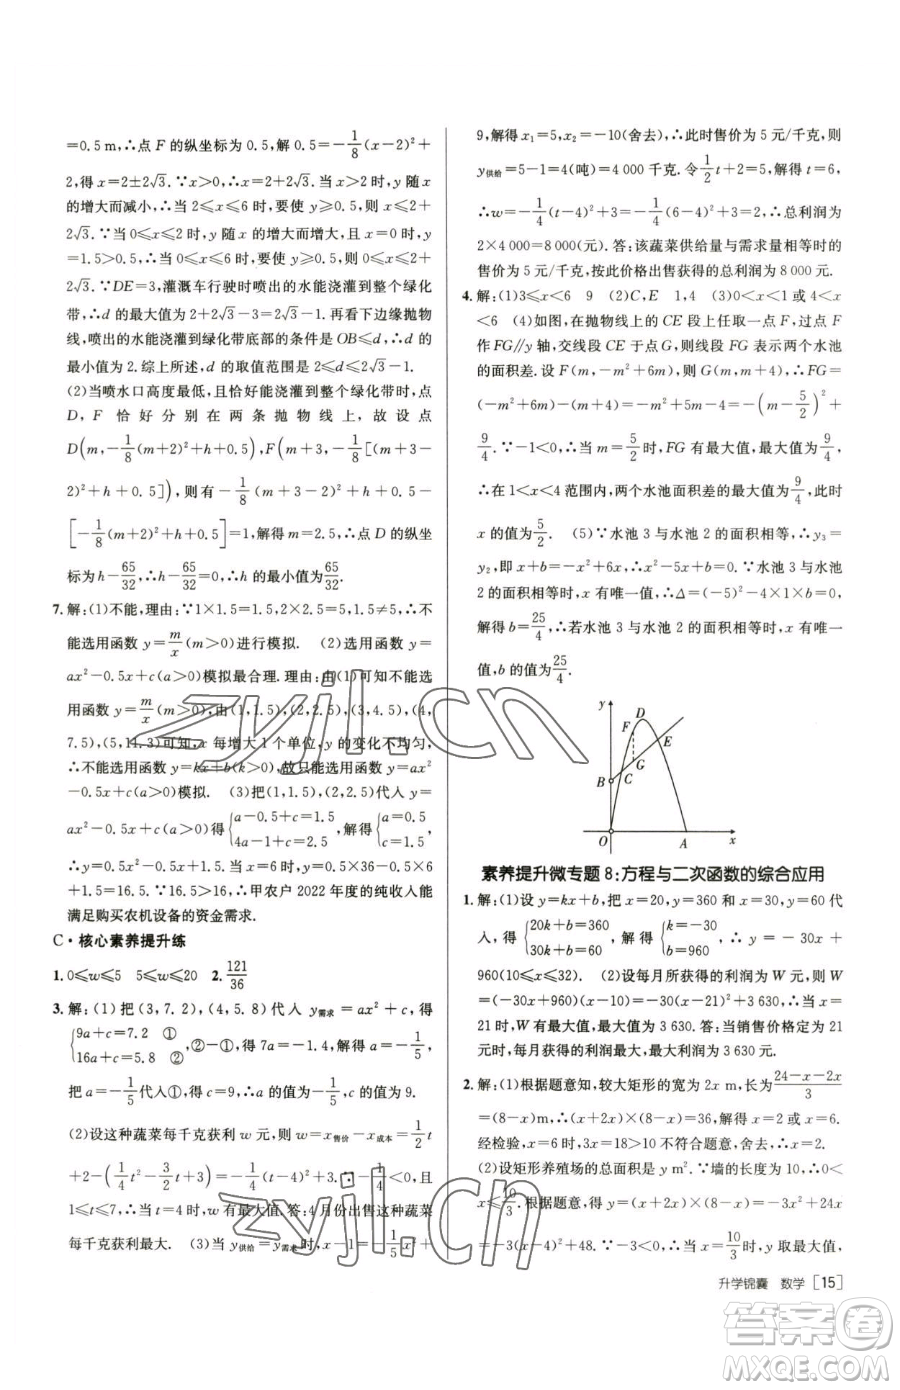 =0.5 m,∴点 F 的纵坐标为 0.5,解 0.5=-1/8(x-2)²+
2,得 x=2±2√3.∵x>0,∴x=2+2√3.当 x>2 时,y 随 x
的增大而减小,∴当 2≤x≤6 时,要使 y≥0.5,则 x≤2+
2√3.∵当 0≤x≤2 时,y 随 x 的增大而增大,且 x=0 时,
y=1.5>0.5,∴当 0≤x≤6 时,要使 y≥0.5,则 0≤x≤2+
2√3.∵DE=3,灌溉车行驶时喷出的水能浇灌到整个绿化
带,∴d 的最大值为 2+2√3-3=2√3-1.再看下边缘抛物
线,喷出的水能浇灌到绿化带底部的条件是 OB≤d,∴d 的
最小值为 2.综上所述,d 的取值范围是 2≤d≤2√3-1.
(2)当喷水口高度最低,且恰好能浇灌到整个绿化带时,点
D,F 恰好分别在两条抛物线上,故设点
D(m,-1/8(m+2)²+h+0.5),F(m+3,-1/8[(m+3-
2)²+h+0.5]),则有-1/8(m+3-2)²+h+0.5-
[-1/8(m+2)²+h+0.5]=1,解得 m=2.5,∴点 D 的纵坐
标为 h-65/32,∴h-65/32=0,∴h 的最小值为65/32.
7.解:(1)不能,理由:∵1×1.5=1.5,2×2.5=5,1.5≠5,∴不
能选用函数 y=m/x(m>0)进行模拟. (2)选用函数 y=
ax²-0.5x+c(a>0)模拟最合理.理由:由(1)可知不能选
用函数 y=m/x(m>0),由(1,1.5),(2,2.5),(3,4.5),(4,
7.5),(5,11.3)可知,x 每增大 1 个单位,y 的变化不均匀,
∴不能选用函数 y=kx+b(k>0),故只能选用函数 y=ax²
-0.5x+c(a>0)模拟. (3)把(1,1.5),(2,2.5)代入 y=
ax²-0.5x+c(a>0)得{a-0.5+c=1.5, 4a-1+c=2.5},解得{a=0.5 c=1.5},∴y=
0.5x²-0.5x+1.5,当 x=6 时,y=0.5×36-0.5×6
+1.5=16.5,∵16.5>16,∴甲农户 2022 年度的纯收入能
满足购买农机设备的资金需求.
C·核心素养提升练
1.0≤w≤5 5≤w≤20 2.121/36
3.解:(1)把(3,7.2),(4,5.8)代入 y需求=ax²+c,得
{9a+c=7.2 ① 16a+c=5.8 ②},②-①,得 7a=-1.4,解得 a=-1/5,
把 a=-1/5代入①,得 c=9,∴a 的值为-1/5,c 的值为 9.
(2)设这种蔬菜每千克获利 w 元,则 w=x售价-x成本=1/2t
+2-(1/4t²-3/2t+3)=-1/4(t-4)²+3.∵-1/4<0,且
1≤t≤7,∴当 t=4 时,w 有最大值.答:4 月份出售这种蔬菜
每千克获利最大. (3)当 y供给=y需求时,x-1=-1/5x²+
9,解得 x₁=5,x₂=-10(舍去),∴此时售价为 5 元/千克,则
y供给=5-1=4(吨)=4 000 千克.令1/2t+2=5,解得 t=6,
∴w=-1/4(t-4)²+3=-1/4(6-4)²+3=2,∴总利润为
2×4 000=8 000(元).答:该蔬菜供给量与需求量相等时的
售价为 5 元/千克,按此价格出售获得的总利润为 8 000 元.
4.解:(1)3≤x<6 9 (2)C,E 1,4 (3)0<x<1 或 4<x
<6 (4)如图,在抛物线上的 CE 段上任取一点 F,过点 F
作 FG//y 轴,交线段 CE 于点 G,则线段 FG 表示两个水池
的面积差.设 F(m,-m²+6m),则 G(m,m+4),∴FG=
(-m²+6m)-(m+4)=-m²+5m-4=-(m-5/2)²+
9/4.∵-1<0,∴当 m=5/2时,FG 有最大值,最大值为9/4,
∴在 1<x<4 范围内,两个水池面积差的最大值为9/4,此时
x 的值为5/2. (5)∵水池 3 与水池 2 的面积相等,∴y₃=
y₂,即 x+b=-x²+6x,∴x²-5x+b=0.∵水池 3 与水池
2 的面积相等时,x 有唯一值,∴Δ=(-5)²-4×1×b=0,
解得 b=25/4,∴若水池 3 与水池 2 的面积相等时,x 有唯一
值,b 的值为25/4.
y D F E G B C O A x
素养提升微专题 8:方程与二次函数的综合应用
1.解:(1)设 y=kx+b,把 x=20,y=360 和 x=30,y=60 代
入,得{20k+b=360 30k+b=60},解得{k=-30 b=960},∴y=-30x+
960(10≤x≤32). (2)设每月所获得的利润为 W 元,则 W
=(-30x+960)(x-10)=-30(x-21)²+3 630,∴当 x=
21 时,W 有最大值,最大值为 3 630.答:当销售价格定为 21
元时,每月获得的利润最大,最大利润为 3 630 元.
2.解:(1)根据题意知,较大矩形的宽为 2x m,长为(24-x-2x)/3
=(8-x)m,∴(x+2x)×(8-x)=36,解得 x=2 或 x=6.
经检验,x=6 时,3x=18>10 不符合题意,舍去,∴x=2.
(2)设矩形养殖场的总面积是 y m².∵墙的长度为 10,∴0<
x≤10/3.根据题意,得 y=(x+2x)×(8-x)=-3x²+24x
=-3(x-4)²+48.∵-3<0,∴当 x=10/3时,y 取最大值,
升学锦囊 数学 [15]
zyjl.cn
zyjl.cn
答案圈
MXQE.COM